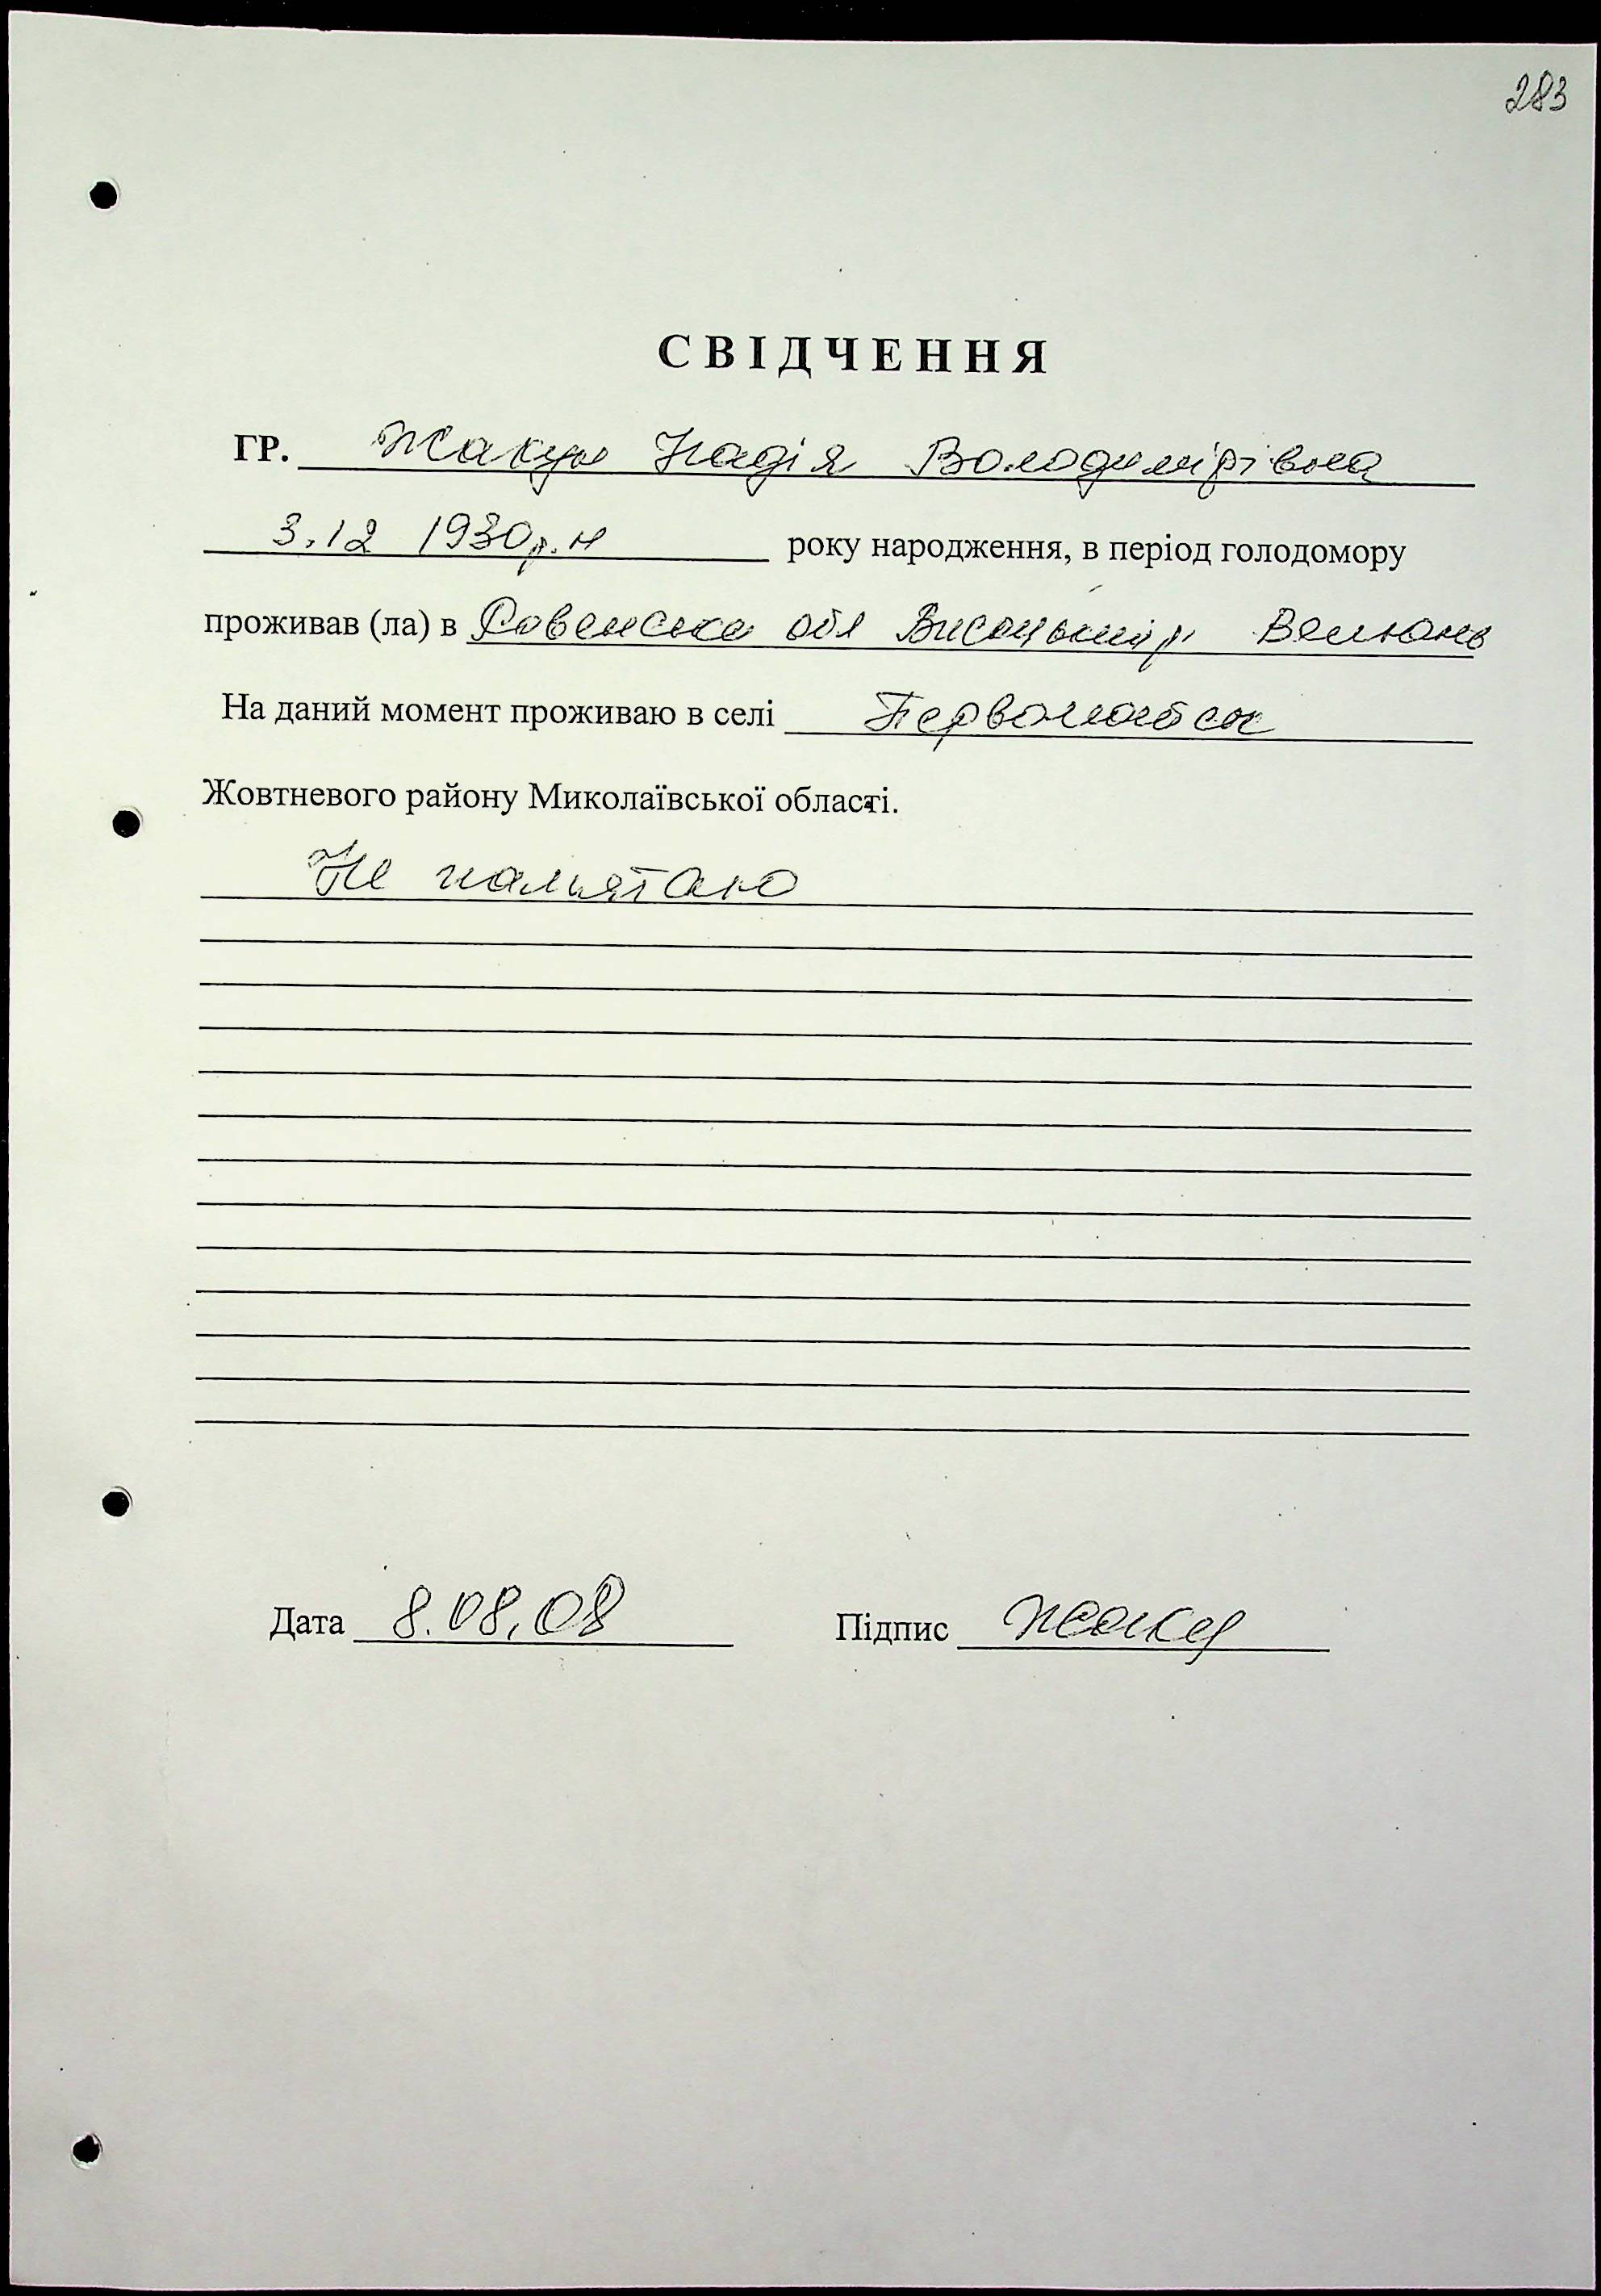 283
СВІДЧЕННЯ
ГР. Жакун Надія Володимірівна
3.12 1930р.н року народження, в період голодомору
проживав (ла) в Ровенська обл Висоцький р. Велюнь
На даний момент проживаю в селі Первомайськ
Жовтневого району Миколаївської області.
Не памьятаю
Дата 8.08.08 Підпис